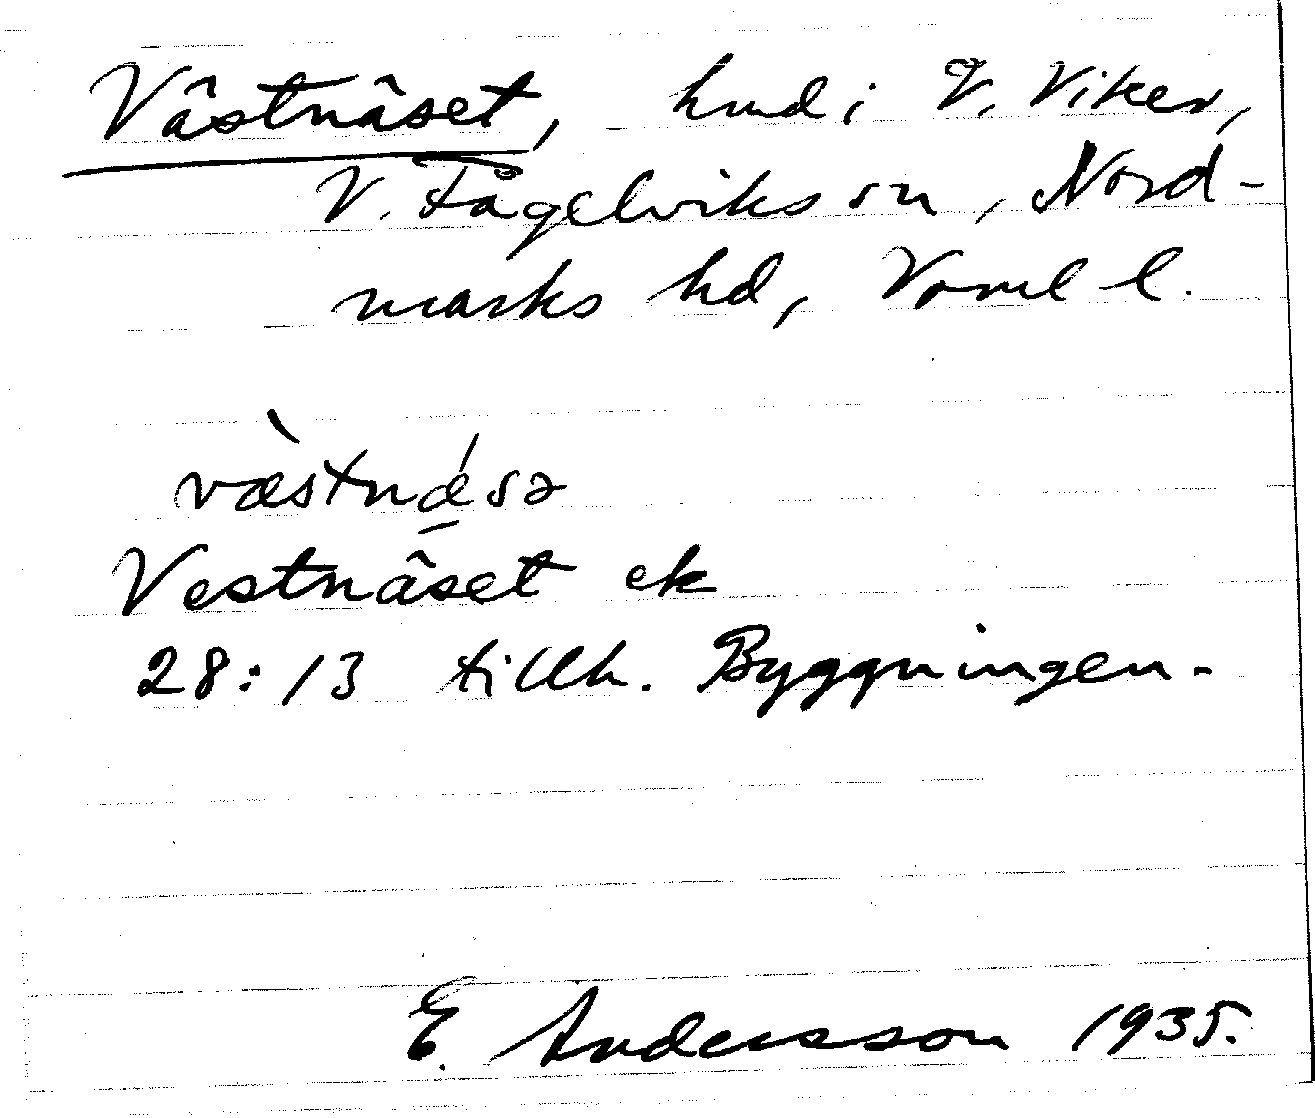 Västnäset, hmd i V. Viker,
V. Fågelviks sn, Nord-
marks hd, Värml l.
væ̀stnǽsə
Vestnäset ek
28:13 tillh. Byggningen.
E. Andersson 1935.